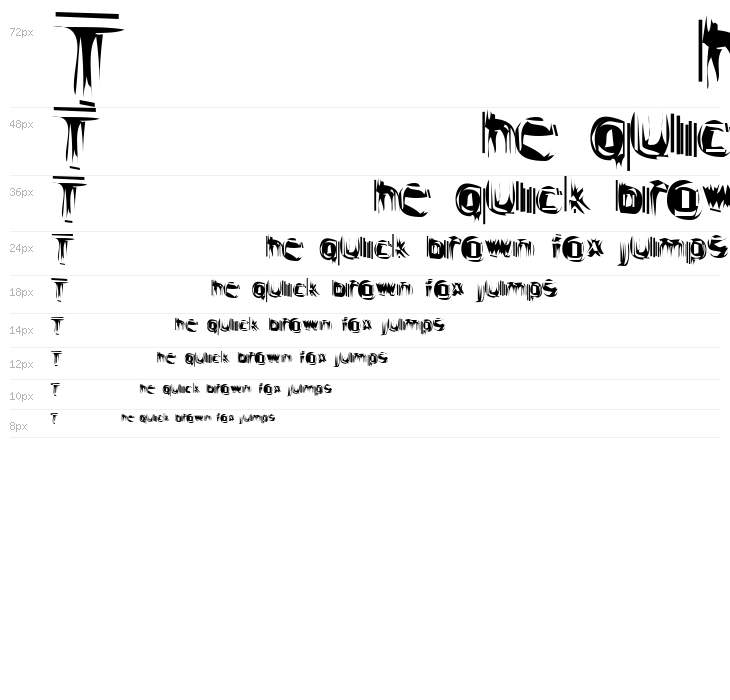 72px T h
48px The quic
36px The quick brow
24px The quick brown fox jumps
18px The quick brown fox jumps
14px The quick brown fox jumps
12px The quick brown fox jumps
10px The quick brown fox jumps
8px The quick brown fox jumps